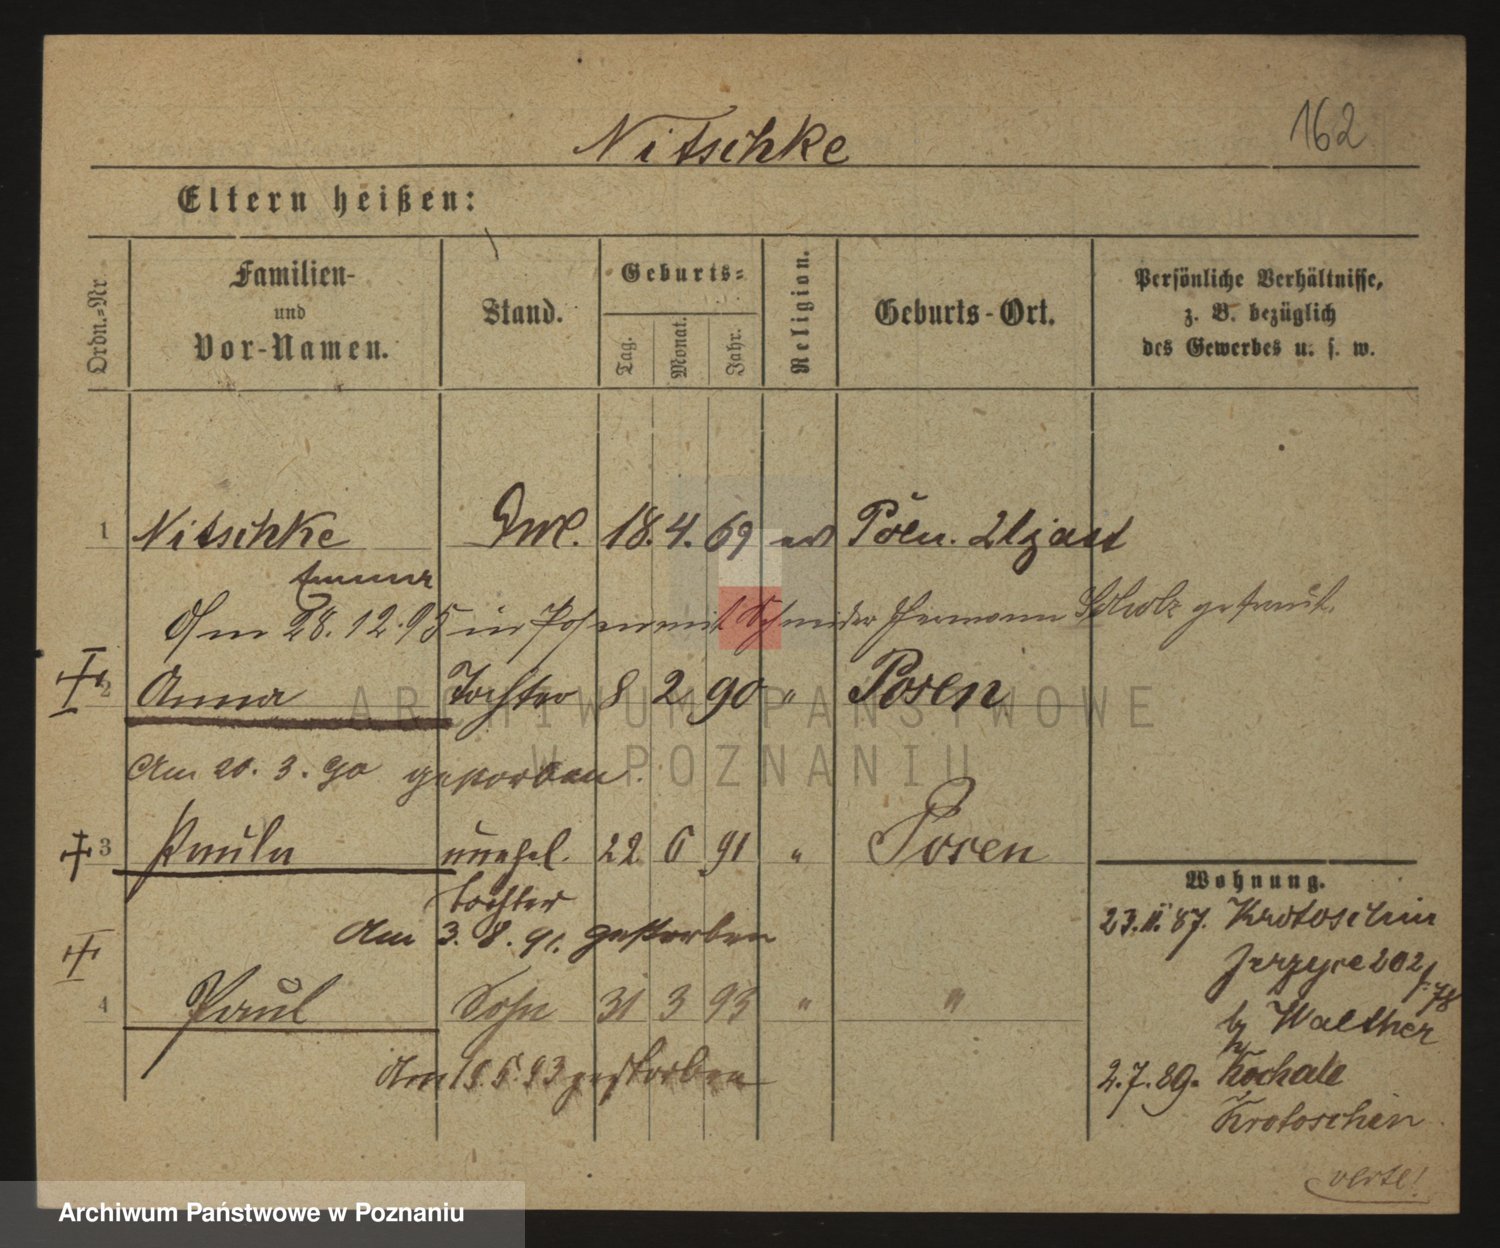 162
Nitschke
Eltern heißen:
Ordn.-Nr
Familien-
und
Vor-Namen.
Stand.
Geburts-
Tag.
Monat.
Jahr.
Religion.
Geburts-Ort.
Persönliche Verhältnisse,
z. B. bezüglich
des Gewerbes u. s. w.
1 Nitschke 18. 4. 69
Emma
Am 28.12.95 in Posen mit Schneider Hermann Scholz getraut.
2 Anna Tochter 8 2 90 " Posen
Am 20. 3. 90 gestorben.
3 Paula unehel. 22. 6 91 " Posen
Tochter
Am 3. 8. 91. gestorben
4 Paul Sohn 31 3 93 " "
Am 15.5.93 gestorben
Wohnung.
23.11.87. Krotoschin
Jerzyce 202/78
by Walther
2.7.89. Kochale
Krotoschin
verte!
ARCHIWUM PAŃSTWOWE
W POZNANIU
Archiwum Państwowe w Poznaniu